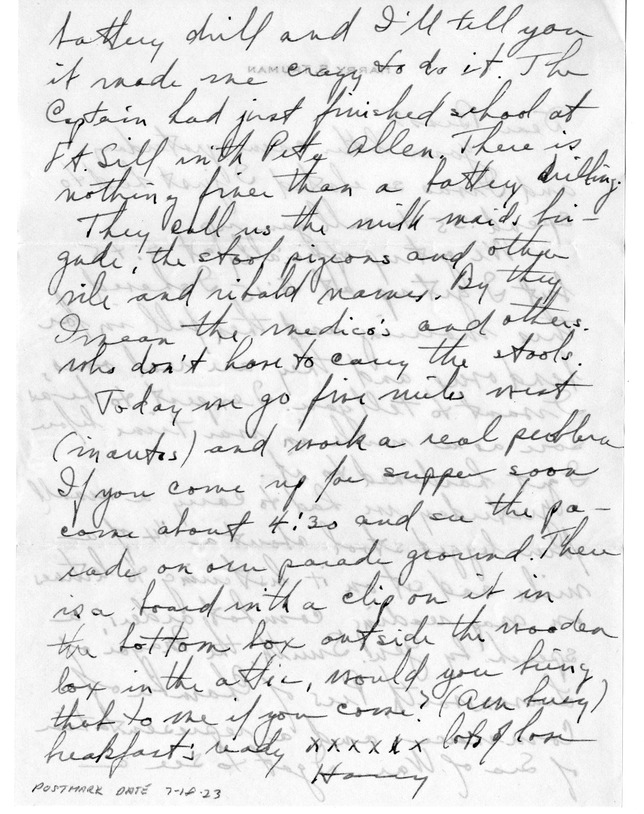 battery drill and I'll tell you
it made me crazy to do it. The
Captain had just finished school at
Ft. Sill with Pete Allen. There is
nothing finer than a battery drilling.
They call us the milk maids bri-
gade, the stool pigeons and other
vile and ribald names. By they
I mean the medico's and others.
who don't have to carry the stools.
Today we go five miles west
(in autos) and work a real problem
If you come up for supper soon
come about 4:30 and see the pa-
rade on our parade ground. There
is a board with a clip on it in
the bottom box outside the wooden
box in the attic, would you bring
that to me if you come? (Am busy)
breakfast's ready xxxxxx lots of love
Harry
POSTMARK DATE 7-18-23